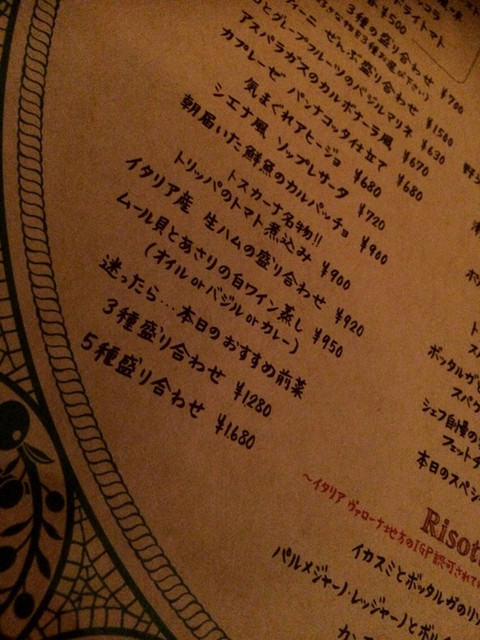 ドライトマト
¥500
3種の盛り合わせ ¥700
ぜんぶ盛り合わせ ¥1500
とグレープフルーツのバジルマリネ ¥630
アスパラガスのカルボナーラ風 ¥670
カプレーゼ パンナコッタ仕立て ¥680
気まぐれアヒージョ ¥680
シエナ風 ソップレサータ ¥720
朝届いた鮮魚のカルパッチョ ¥900
トスカーナ名物!!
トリッパのトマト煮込み ¥900
イタリア産 生ハムの盛り合わせ ¥920
ムール貝とあさりの白ワイン蒸し ¥950
(オイル or バジル or カレー)
迷ったら…本日のおすすめ前菜
3種盛り合わせ ¥1280
5種盛り合わせ ¥1,680
ボッタルガ
スパゲ
シェフ自慢の
フェットチ
本日のスペシ
Risot
~イタリア ヴァローナ地方のIGP認可されて
イカスミとボッタルガのリゾ
パルメジャーノ・レッジャーノとポル